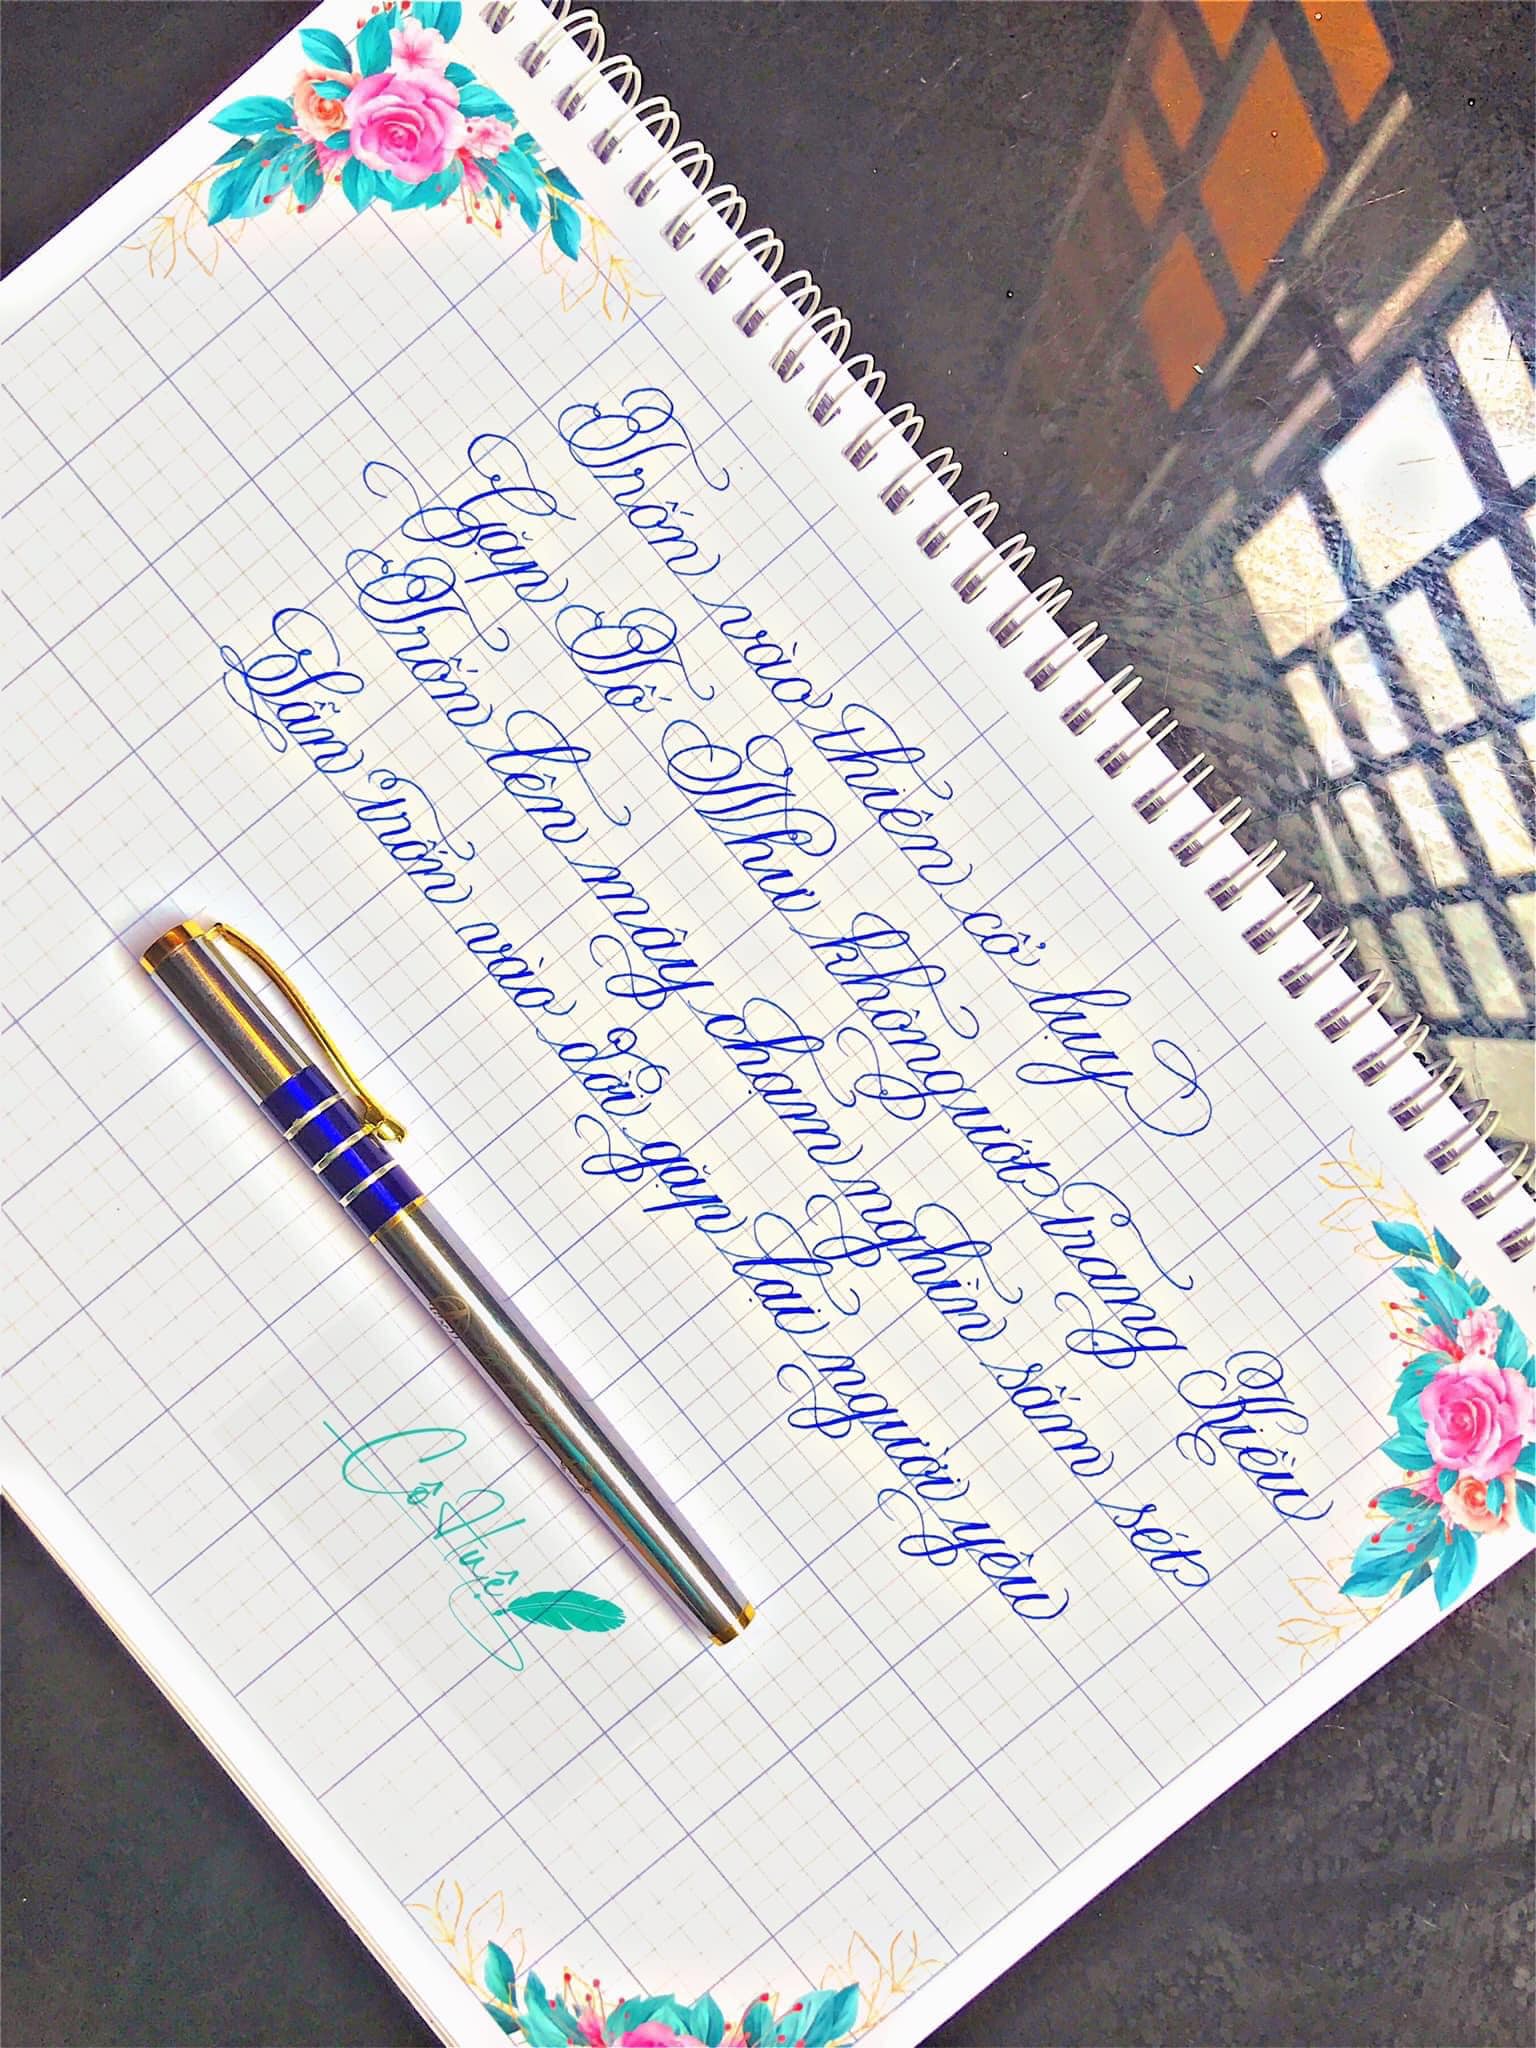 Trốn vào thiên cổ lụy
Gặp Tố Như không ngước Trang Kiều
Trốn lên mây chạm nghìn sấm sét
Lẩn trốn vào đời gặp lại người yêu
Cô Huệ